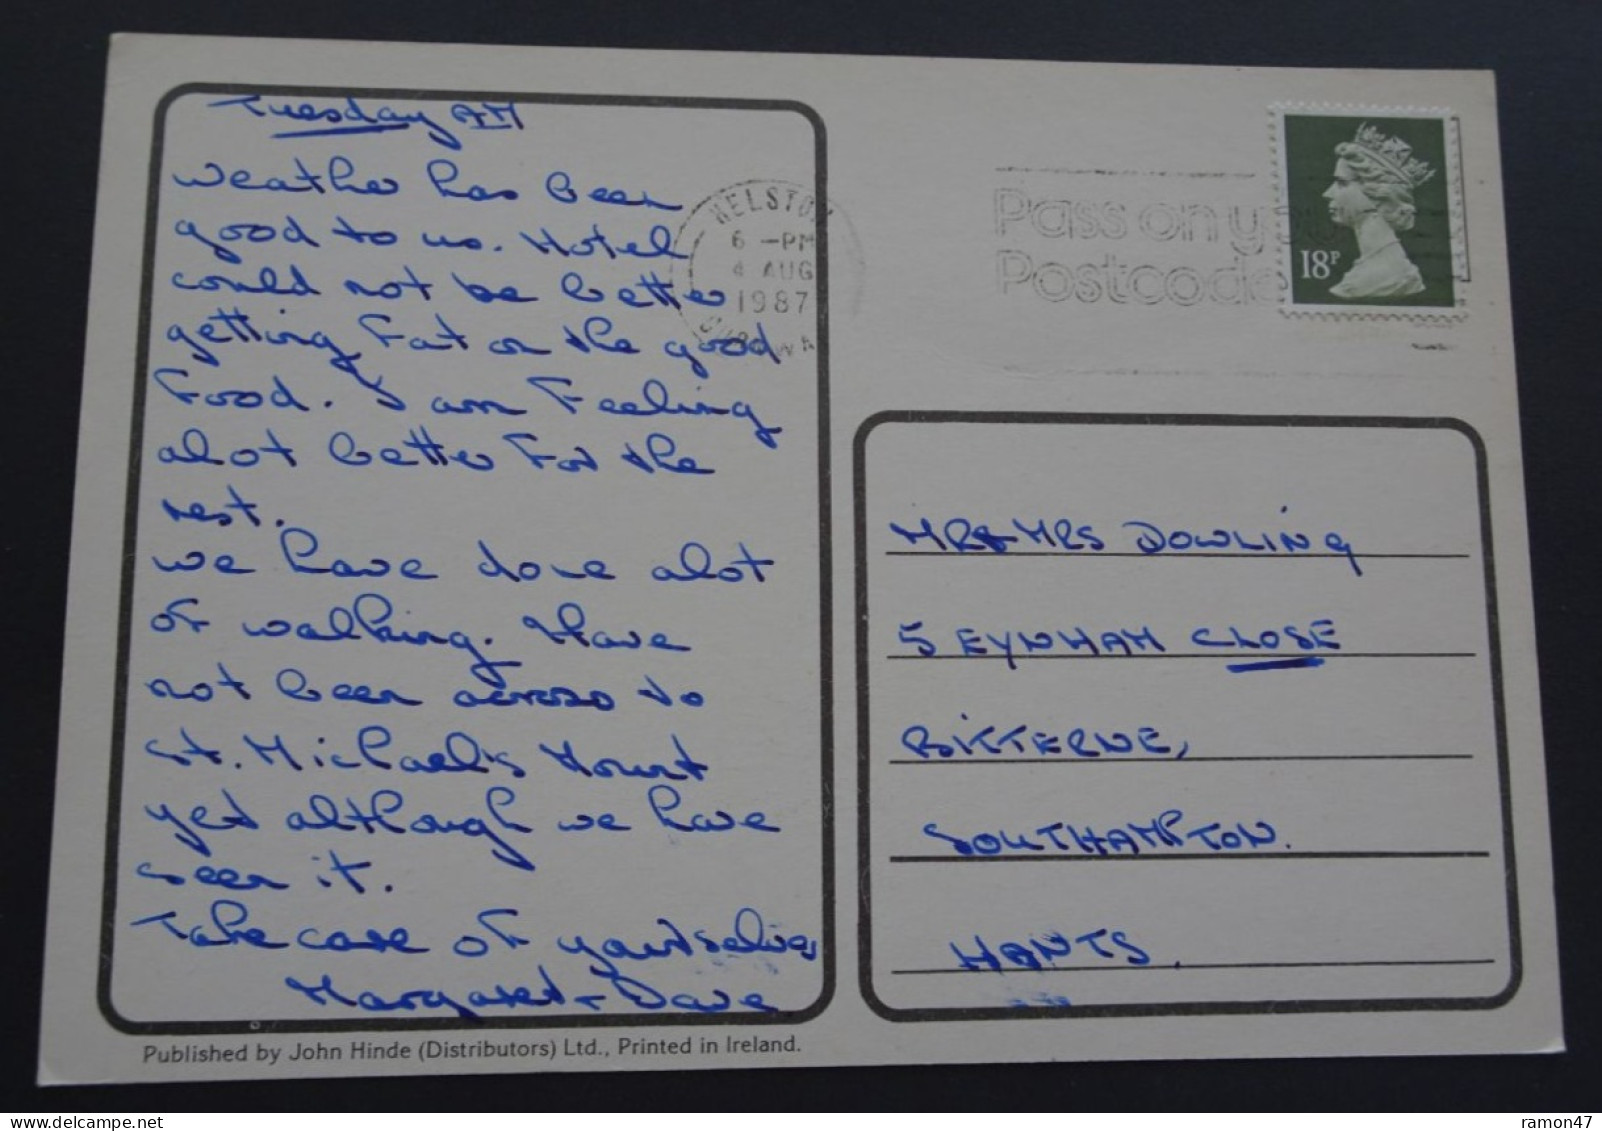 Tuesday AM
Weather has been
good to us. Hotel
could not be better
getting fat on the good
food. I am feeling
alot better for the
rest.
We have done alot
of walking. Have
not been across to
St. Michael's Mount
yet although we have
seen it.
Take care of yourselves
Margaret + Dave
Published by John Hinde (Distributors) Ltd., Printed in Ireland.
HELSTON
6 -PM
4 AUG
1987
CORNWALL
Pass on your
Postcode
18P
MR & MRS DOWLING
5 EYNHAM CLOSE
BITTERNE,
SOUTHAMPTON.
HANTS.
ramon47